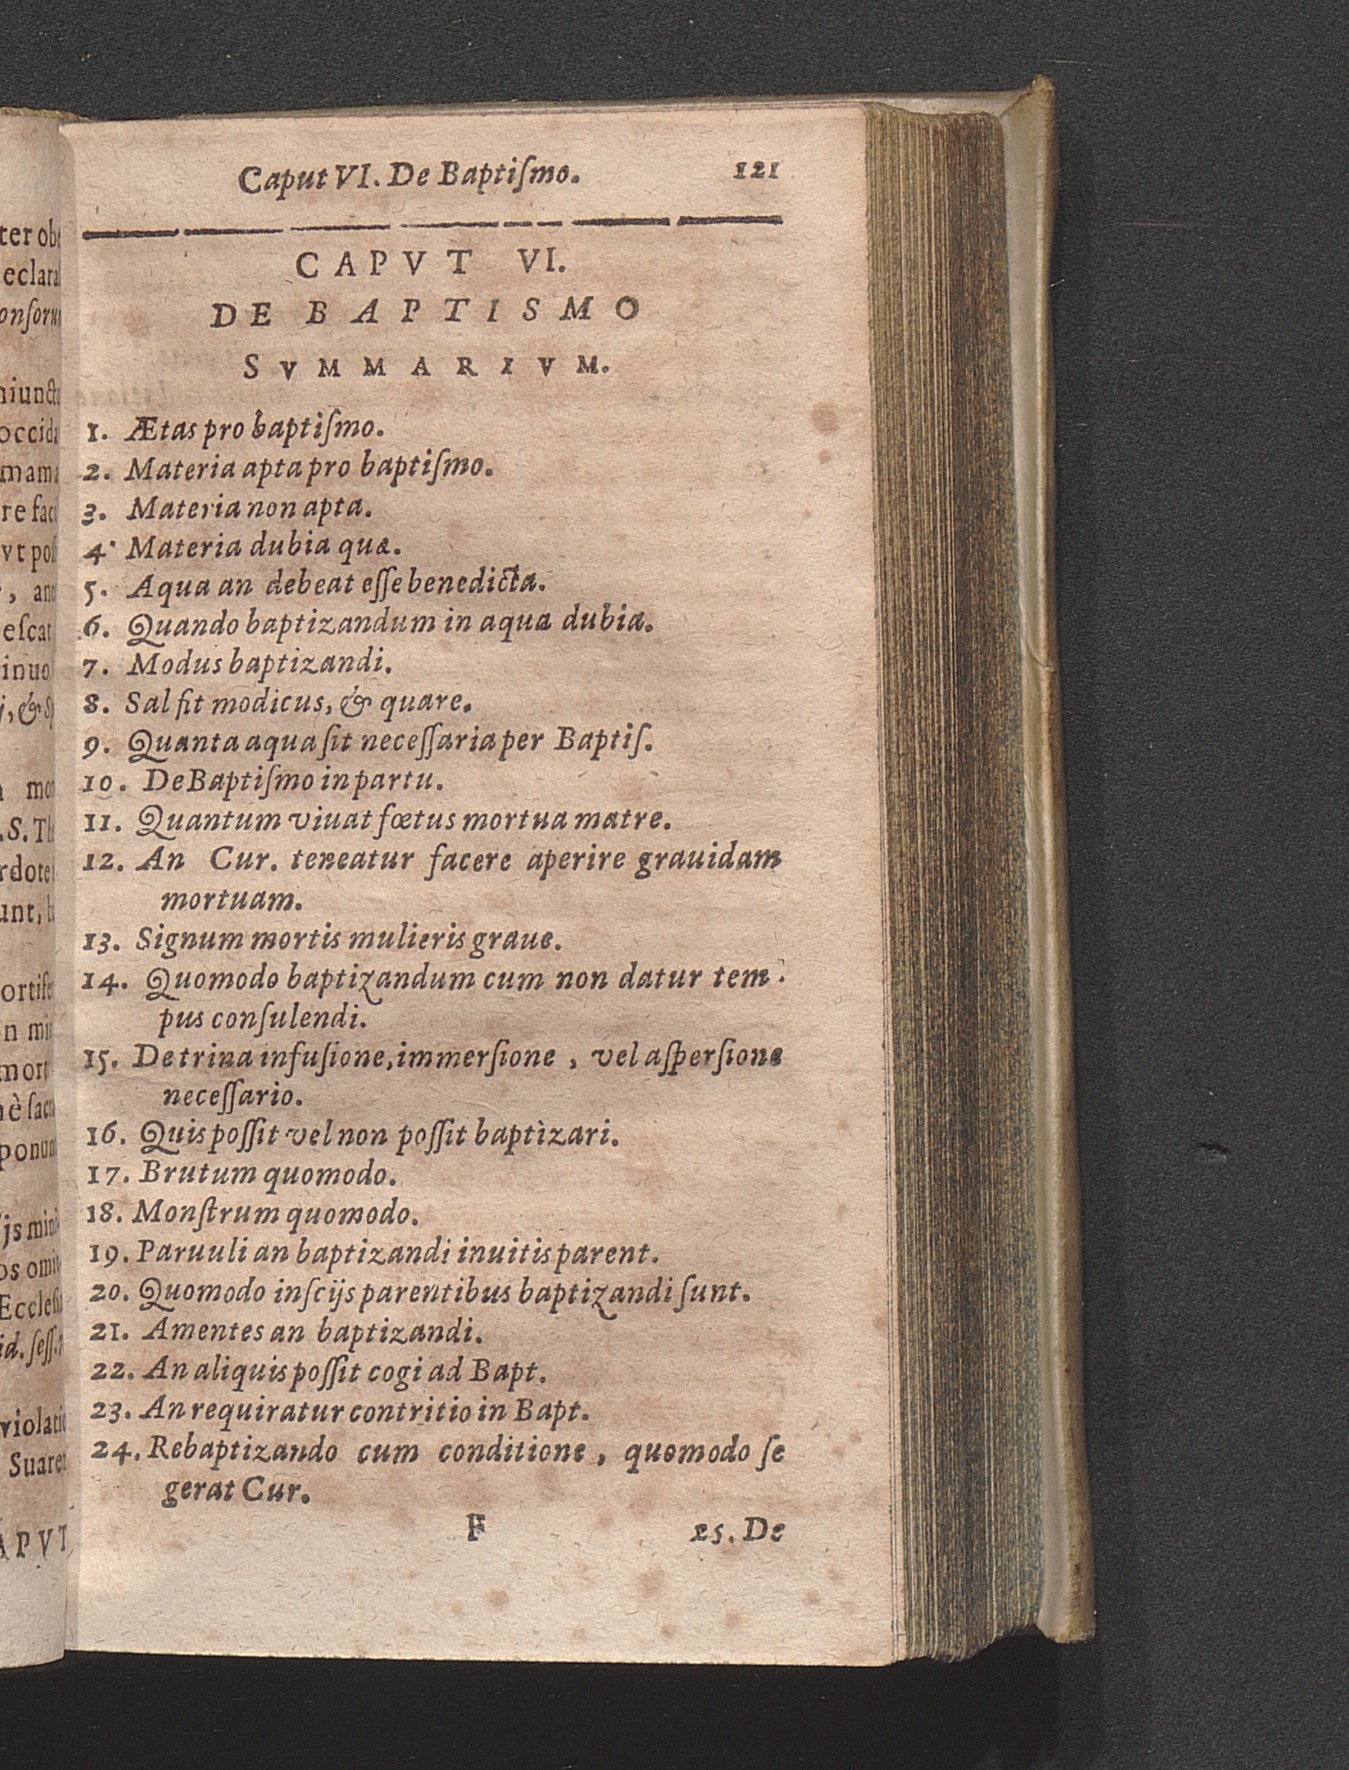 Caput VI. De Baptiſmo. 121
CAPVT VI.
DE BAPTISMO
SVMMARIVM.
1. Ætas pro baptiſmo.
2. Materia apta pro baptiſmo.
3. Materia non apta.
4. Materia dubia quæ.
5. Aqua an debeat eſſe benedicta.
6. Quando baptizandum in aqua dubia.
7. Modus baptizandi.
8. Sal ſit modicus, & quare.
9. Quanta aqua ſit neceſſaria per Baptiſ.
10. De Baptiſmo in partu.
11. Quantum viuat fœtus mortua matre.
12. An Cur. teneatur facere aperire grauidam
mortuam.
13. Signum mortis mulieris graue.
14. Quomodo baptizandum cum non datur tem-
pus conſulendi.
15. De trina infuſione, immerſione, vel aſperſione
neceſſario.
16. Quis poſſit vel non poſſit baptizari.
17. Brutum quomodo.
18. Monſtrum quomodo.
19. Paruuli an baptizandi inuitis parent.
20. Quomodo inſcijs parentibus baptizandi ſunt.
21. Amentes an baptizandi.
22. An aliquis poſſit cogi ad Bapt.
23. An requiratur contritio in Bapt.
24. Rebaptizando cum conditione, quomodo ſe
gerat Cur.
F 25. De